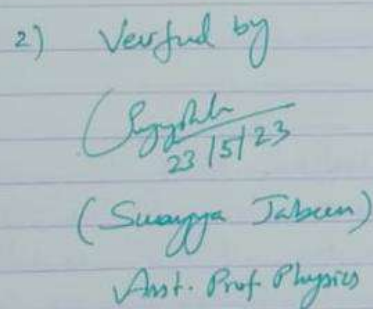 2) Verified by
23/5/23
(Sumayya Jabeen)
Asst. Prof Physics